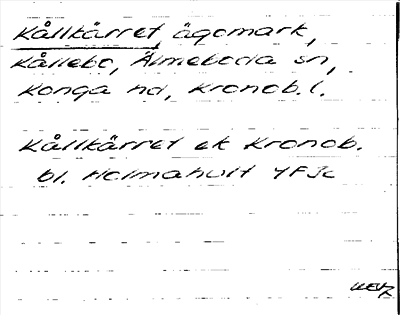 Kållkärret, ägomark,
Kållebo, Älmeboda sn,
Konga hd, Kronob. l.
Kållkärret ek Kronob.
bl. Holmahult 4F3c